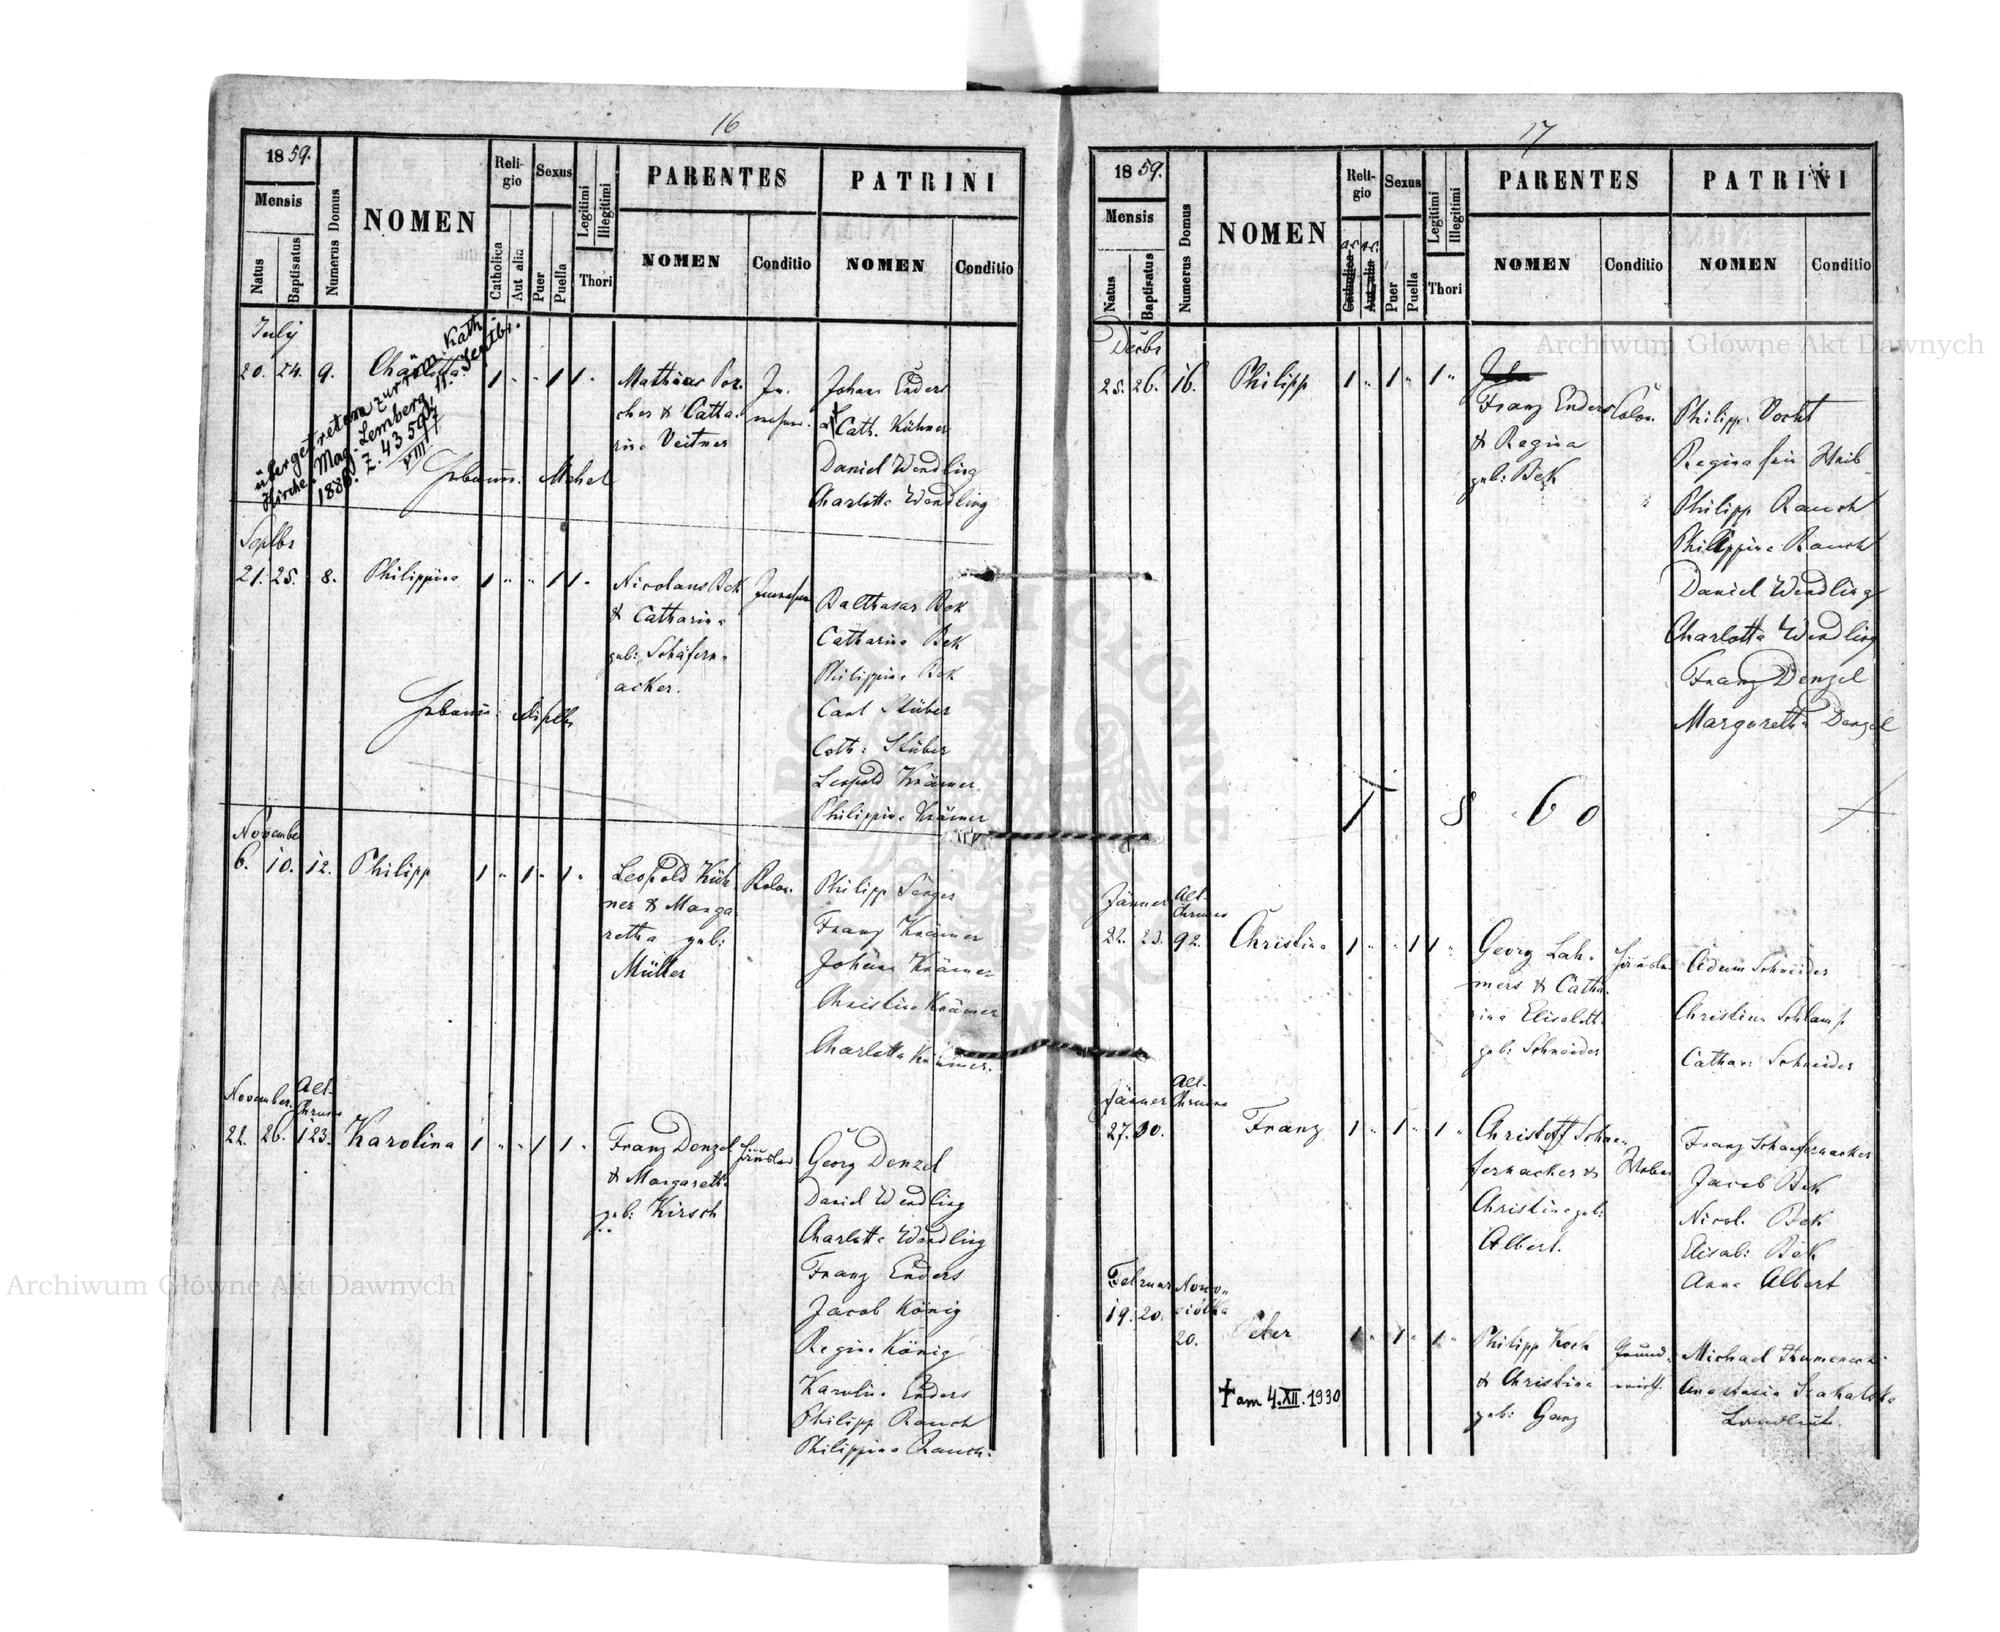 16
1859.
Mensis
Natus
Baptisatus
Numerus Domus
NOMEN
Religio
Catholica
Aut alia
Sexus
Puer
Puella
Legitimi
Illegitimi
Thori
PARENTES
NOMEN
Conditio
PATRINI
NOMEN
Conditio
July
20. 24. 9. Charlotta. 1 " " 1 1 "
übergetreten zur röm. Kath.
Kirche. Mag. Lemberg, 11. Septbr.
1888. Z. 43597
VIII
Mathias Por-
cher & Catha-
rina Veitner
Johann Enders
Cath. Kühner
Daniel Wendling
Charlotte Wendling
Septbr
21. 25. 8. Philippina 1 " " 1 1 "
Nicolaus Bek
& Catharina
geb: Schäfern-
acker.
Balthasar Bek
Catharina Bek
Philippina Bek
Carl Stüber
Cath: Stüber
Leopold Krämer
Philippina Krämer
November
6. 10. 12. Philipp 1 " 1 " 1 "
Leopold Küh-
ner & Marga-
retha geb:
Müller
Kolon.
Philipp Senger
Franz Krämer
Johann Krämer
Christina Krämer
Charlotta Krämer.
November. Alt-
22. 26. 123. Karolina 1 " " 1 1 "
Franz Denzel
& Margareth.
geb: Kirsch
Georg Denzel
Daniel Wendling
Charlotte Wendling
Franz Enders
Jacob König
Regina König
Karolina Enders
Philipp Rauch
Philippina Rauch.
17
1859.
Mensis
Natus
Baptisatus
Numerus Domus
NOMEN
Religio
a.c. h.c.
Catholica
Aut alia
Sexus
Puer
Puella
Legitimi
Illegitimi
Thori
PARENTES
NOMEN
Conditio
PATRINI
NOMEN
Conditio
Decbr
25. 26. 16. Philipp 1 " 1 " 1 "
Franz Enders
& Regina
geb: Bek
Colon.
Philipp Vocht
Regina sein Weib
Philipp Rauch
Philippina Rauch
Daniel Wendling
Charlotta Wendling
Franz Denzel
Margaretha Denzel
1860
Jänner Alt-
22. 23. 92. Christina 1 " " 1 1 "
Georg Lah-
mers & Catha-
rina Elisabeth
geb: Schneider
Adam Schneider
Christina Schlamp
Cathar: Schneider
Jänner Alt-
27. 30. Franz 1 " 1 " 1 "
Christoff Schae-
fernacker &
Christina geb:
Albert.
Weber
Franz Schaefernacker
Jacob Bek
Nicol. Bek
Elisab: Bek
Anna Albert
Februar
19. 20. 20. Peter 1 " 1 " 1 "
Philipp Koch
& Christina
geb: Ganz
Grund-
wirth
Michael
Anastasia
Landleute.
† am 4.XII.1930
Archiwum Główne Akt Dawnych
Archiwum Główne Akt Dawnych
ARCHIWUM GŁÓWNE AKT DAWNYCH